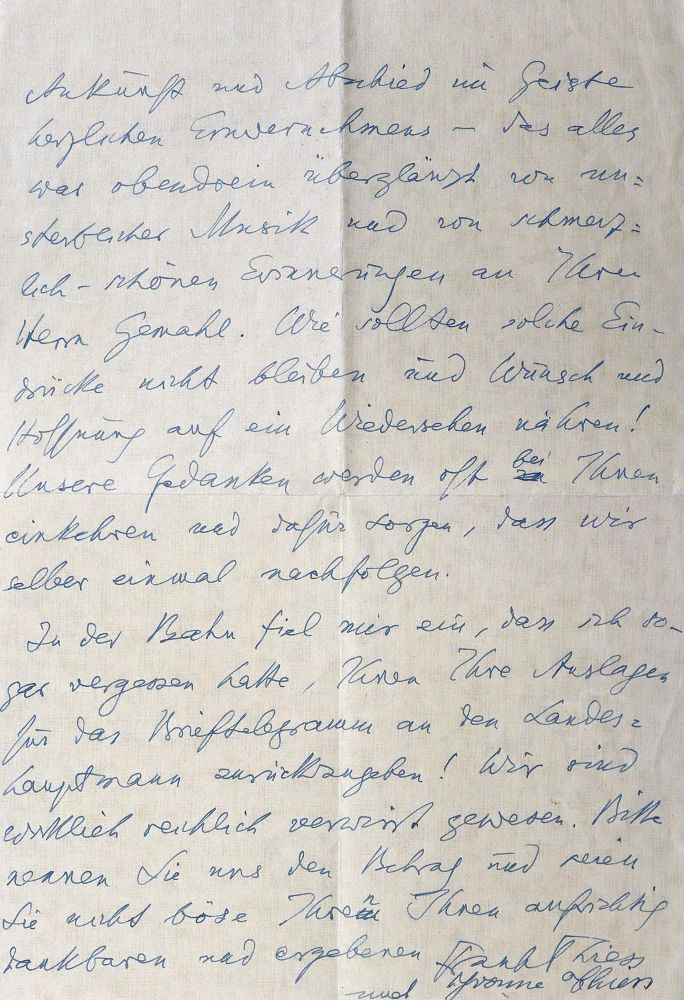 Ankunft und Abschied im Geiste
herzlichen Einvernehmens – das alles
war obendrein überglänzt von un=
sterblicher Musik und von schmerz=
lich-schönen Erinnerungen an Ihren
Herrn Gemahl. Wie sollten solche Ein-
drücke nicht bleiben und Wunsch und
Hoffnung auf ein Wiedersehen nähren!
Unsere Gedanken werden oft bei Ihnen
einkehren und dafür sorgen, dass wir
selber einmal nachfolgen.
In der Bahn fiel mir ein, dass ich so-
gar vergessen hatte, Ihnen Ihre Auslagen
für das Brieftelegramm an den Landes=
hauptmann zurückzugeben! Wir sind
wirklich reichlich verwirrt gewesen. Bitte
nennen Sie uns den Betrag und seien
Sie nicht böse Ihren Ihnen aufrichtig
dankbaren und ergebenen Frank Thiess
und Yvonne Thiess